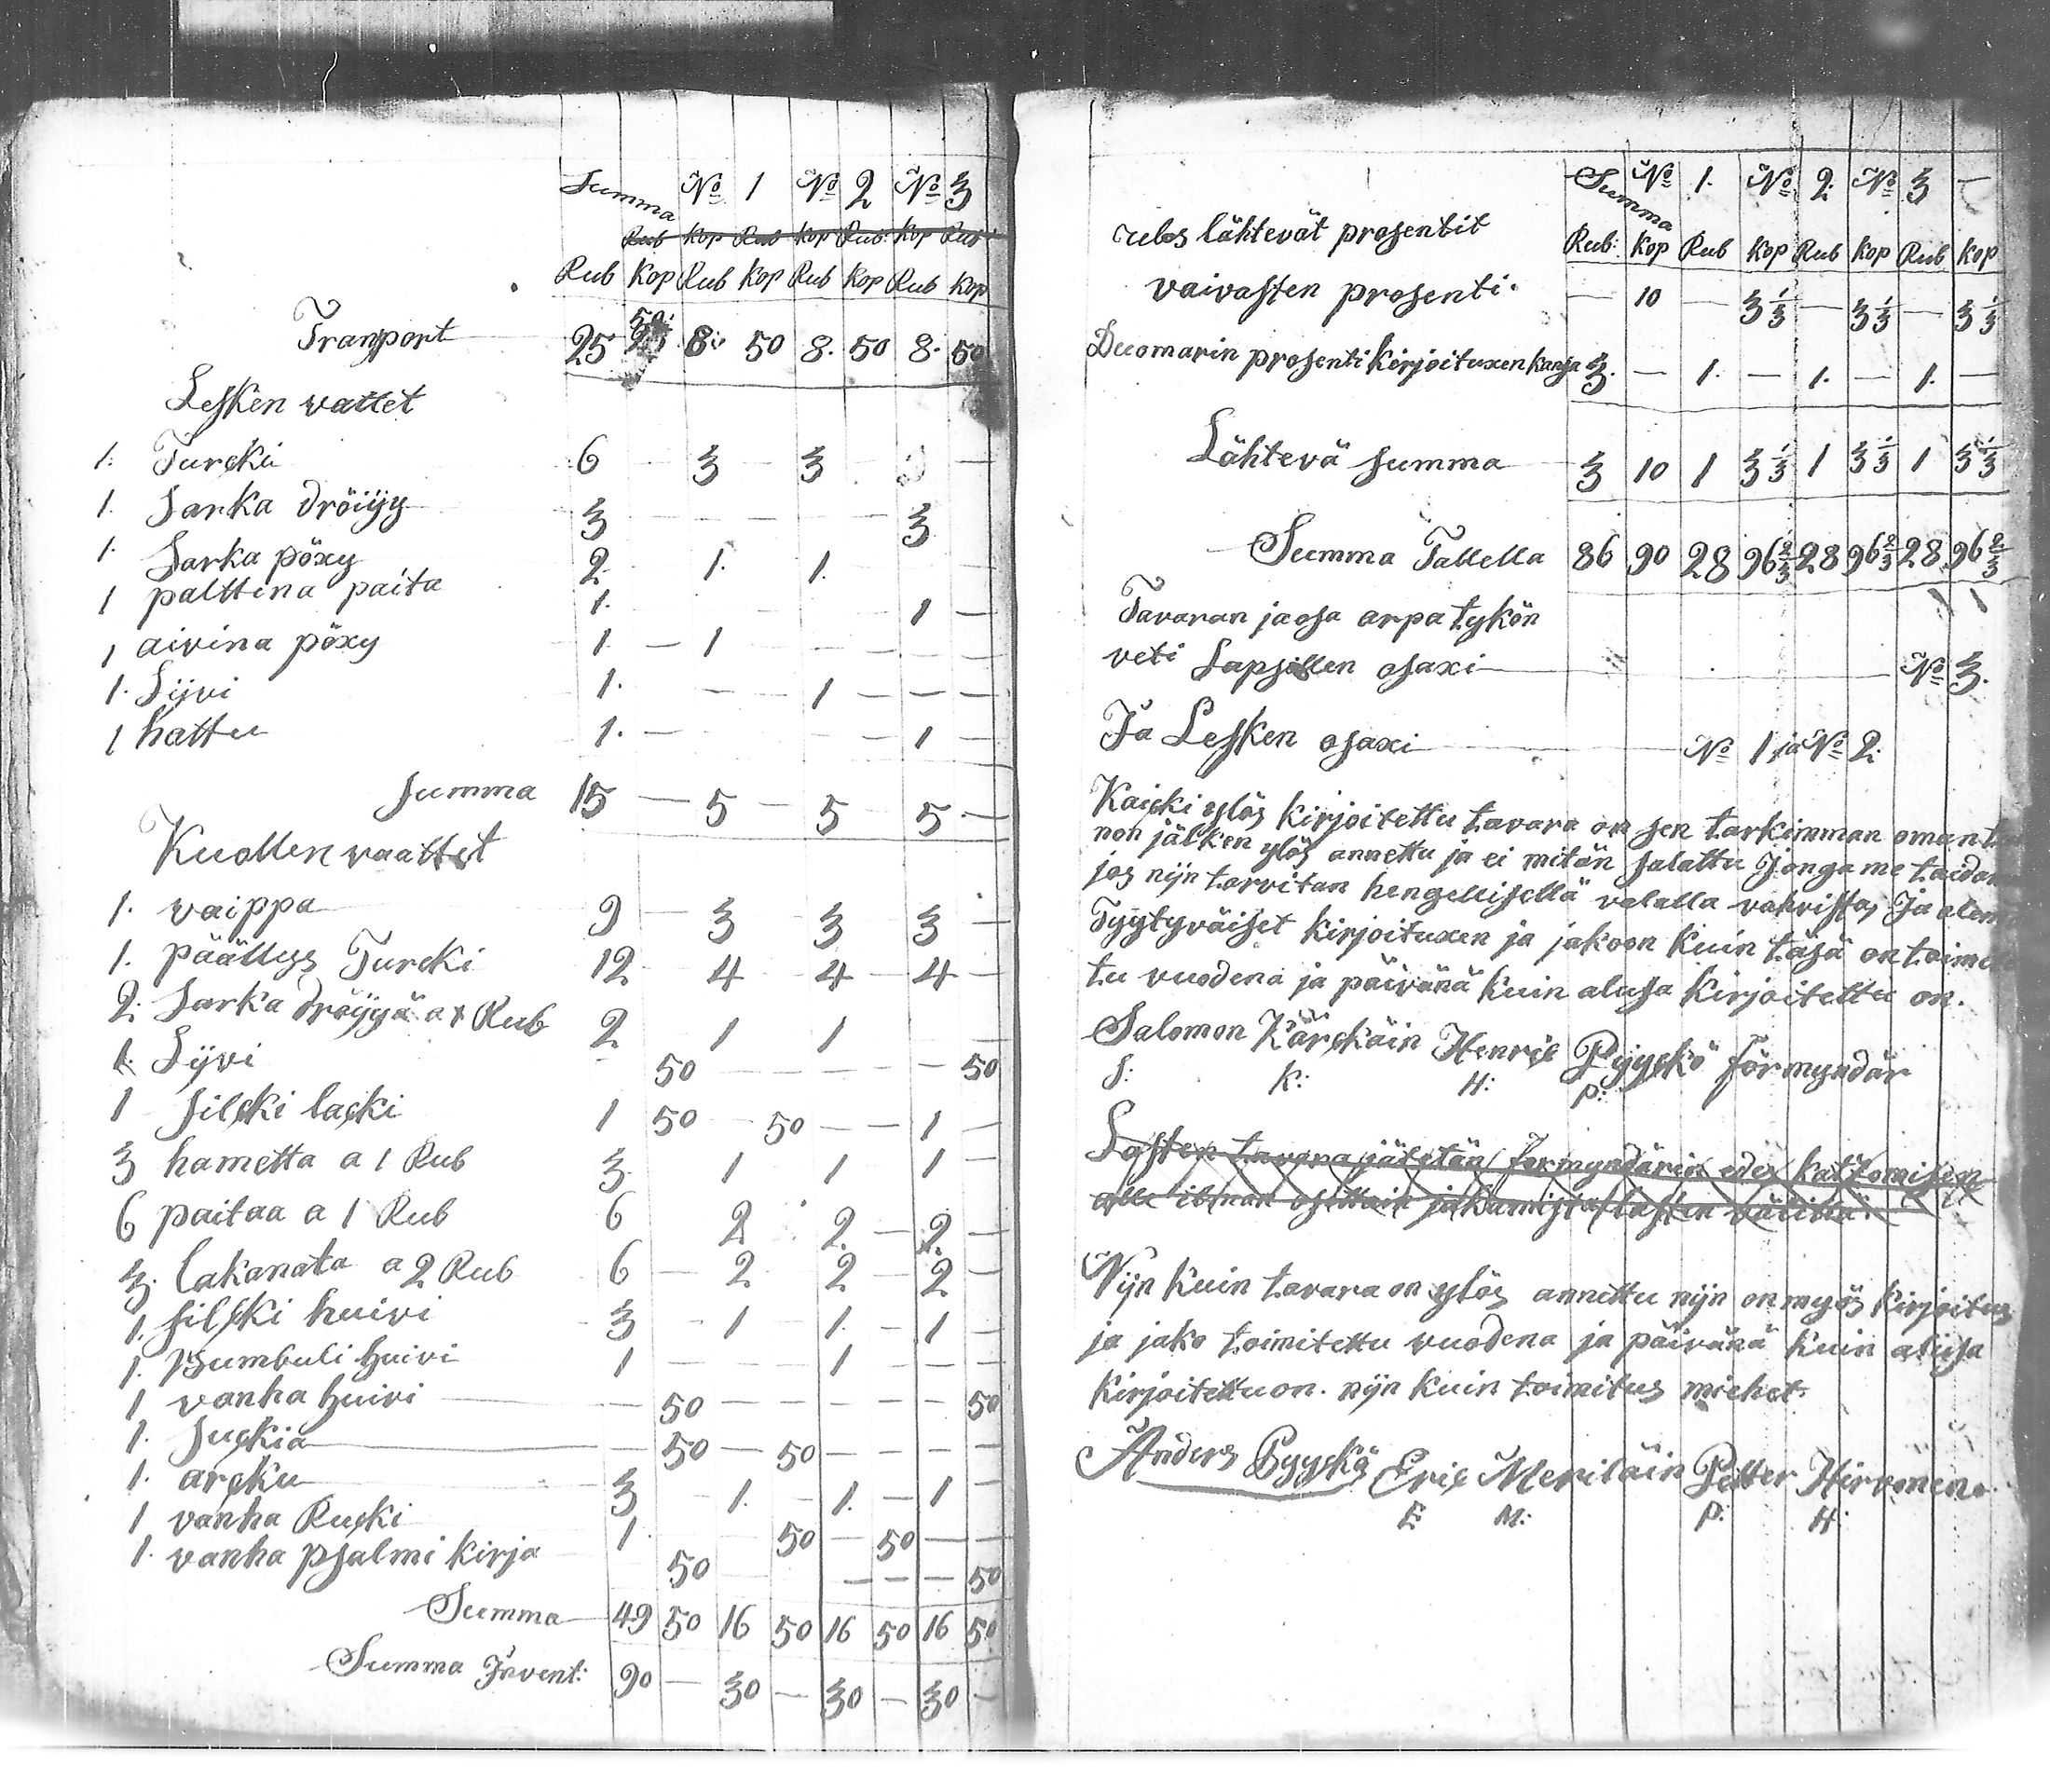 Summa № 1 № 2 № 3
Rub Kop Rub Kop Rub: Kop Rub
Rub Kop Rub Kop Rub Kop Rub Kop
Transport 25 50: 8: 50 8. 50 8. 50
Lesken vattet
1. Turcki 6 3 — 3 —
1. Sarka dröijy 3 — — — 3
1. Sarka pöxy 2 1. 1. —
1 palttina paita 1. 1 —
1 aivina pöxy 1. — 1 — — —
1. Lijvi 1. — — 1 — — —
1 hattu 1. — — — 1 —
Summa 15 — 5 — 5 5 —
Kuollen vaattet
1. vaippa 9 — 3 3 3 —
1. päällys Turcki 12 4 — 4 — 4 —
2. Sarka dröijyä a 1 Rub 2 1 1 —
1. Lijvi — 50 — — — — 50
1 silcki lacki 1 50 — 50 — — 1 —
3 hametta a 1 Rub 3. 1 1 1 —
6 paitaa a 1 Rub 6 2 2 — 2 —
3. lakanata a 2 Rub 6 — 2 2 — 2 —
1. silcki huivi 3 — 1 1. — 1 —
1. Bumbuli huivi 1 — — — 1 — — —
1 vanha huivi — 50 — — — — — 50
1. suckia — 50 — 50 — — — —
1. arcku 3 — 1. — 1. — 1 —
1 vanha Rucki 1. 50 — 50 — —
1. vanha psalmi kirja 50 — — — 50
Summa 49 50 16 50 16 50 16 50
Summa Invent: 90 — 30 — 30 — 30 —
Summa № 1. № 2. № 3
ulos lähtevät prosentit Rub: Kop Rub Kop Rub Kop Rub Kop
vaivasten prosenti. — 10 — 3 1/3 — 3 1/3 — 3 1/3
prosenti kirjoituxen kansa 3. — 1. — 1. — 1. —
Lähtevä summa 3 10 1 3 1/3 1 3 1/3 1 3 1/3
Summa Tallella 86 90 28 96 2/3 28 96 2/3 28 96 2/3
Tavaran jaosa arpa tykön
veti Lapsillen osaxi № 3.
Ja Lesken osaxi № 1 ja № 2.
Kaicki ylös kirjoitettu tavara on sen tarkimman oman
non jälken ylös annettu ja ei mitän salattu Jonga me
jos nijn tarvitan hengellisellä valalla vahvistas Ja
Tyytyväiset kirjoituxen ja jakoon kuin täsä on
tu vuodena ja päivänä kuin alusa kirjoitettu on.
Salomon Kärckäin Henric Pyyckö förmyndär
S: K: H: P:
Lasten tavara jätetän formyndärin edes kattomisen
alla ilman osittain jakamista lasten välillä.
Nijn kuin tavara on ylös annettu nijn on myös kirjoitus
ja jako toimitettu vuodena ja päivänä kuin alusa
kirjoitettu on. nijn kuin toimitus miehet.
Anders Pyyckö Eric Meriläin Petter Hirvonen.
E: M: P: H: